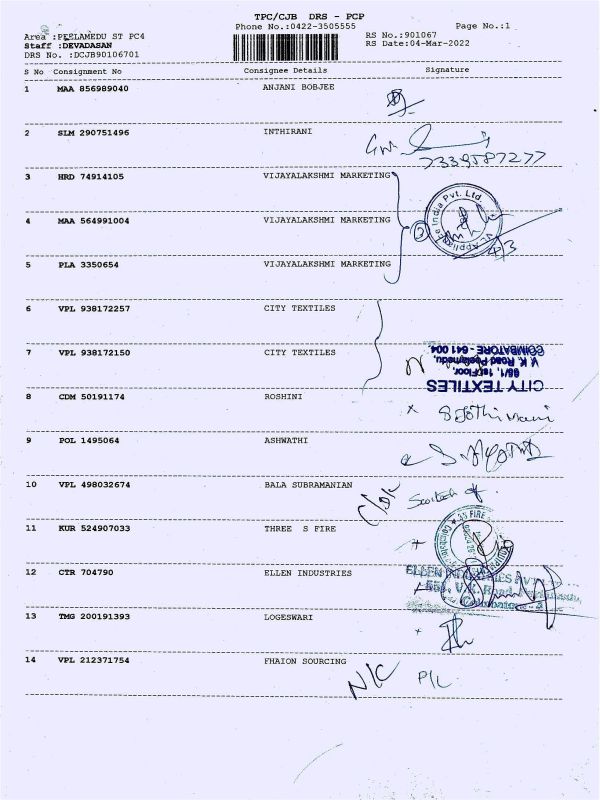 TPC/CJB DRS - PCP
Phone No.:0422-3505555
Page No.:1
Area :PEELAMEDU ST PC4
Staff :DEVADASAN
DRS No. :DCJB90106701
RS No.:901067
RS Date:04-Mar-2022
S No Consignment No Consignee Details Signature
1 MAA 856989040 ANJANI BOBJEE
2 SLM 290751496 INTHIRANI
7339587277
3 HRD 74914105 VIJAYALAKSHMI MARKETING
India Pvt. Ltd.
4 MAA 564991004 VIJAYALAKSHMI MARKETING
3
4/3
5 PLA 3350654 VIJAYALAKSHMI MARKETING
6 VPL 938172257 CITY TEXTILES
7 VPL 938172150 CITY TEXTILES
CITY TEXTILES
1st Floor,
V. K. Road Peelamedu,
COIMBATORE - 641 004.
8 CDM 50191174 ROSHINI
9 POL 1495064 ASHWATHI
10 VPL 498032674 BALA SUBRAMANIAN
11 KUR 524907033 THREE S FIRE
12 CTR 704790 ELLEN INDUSTRIES
13 TMG 200191393 LOGESWARI
14 VPL 212371754 FHAION SOURCING
N/C P/L